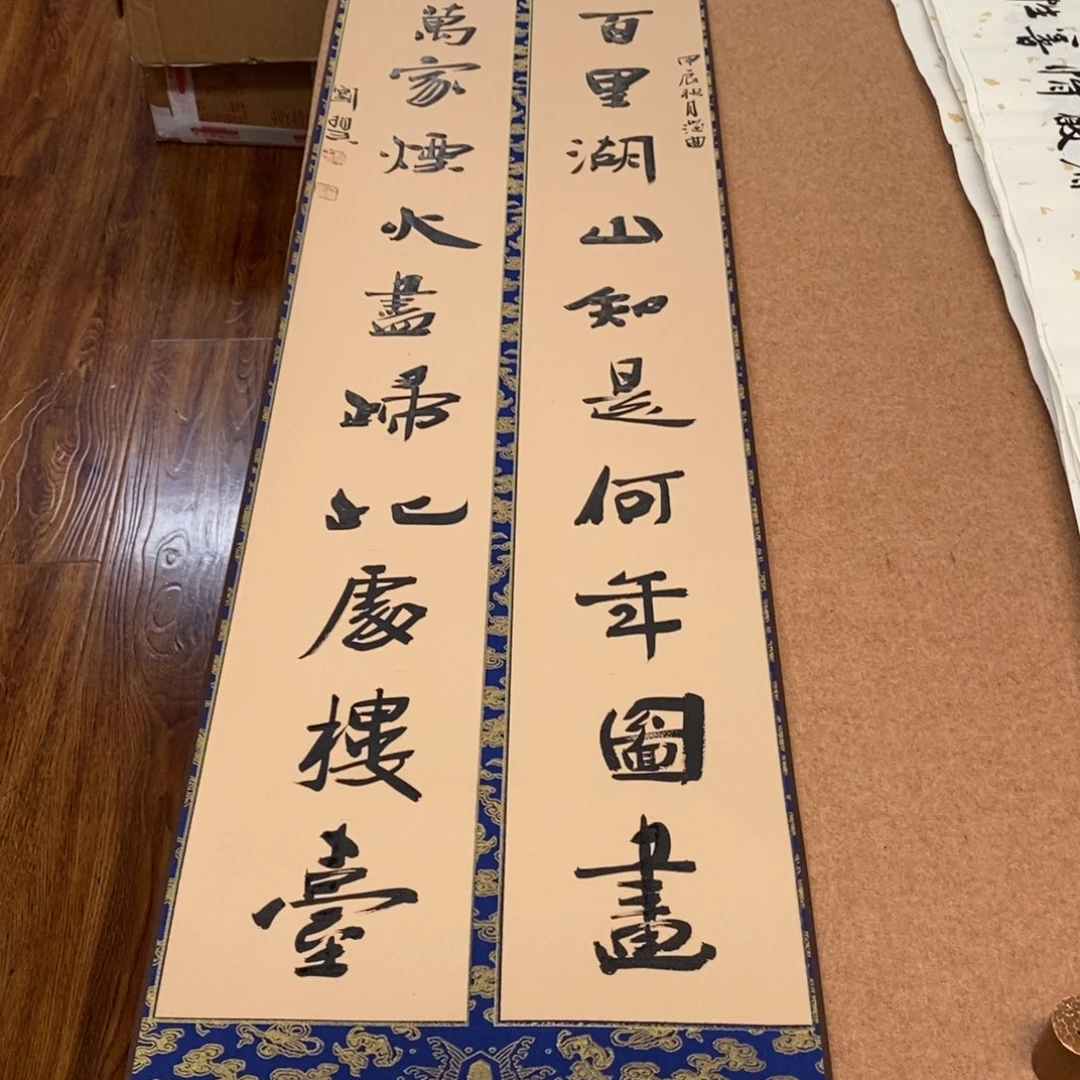 百里湖山知是何年圖畫
甲辰秋月
萬家煙火盡歸此處樓臺